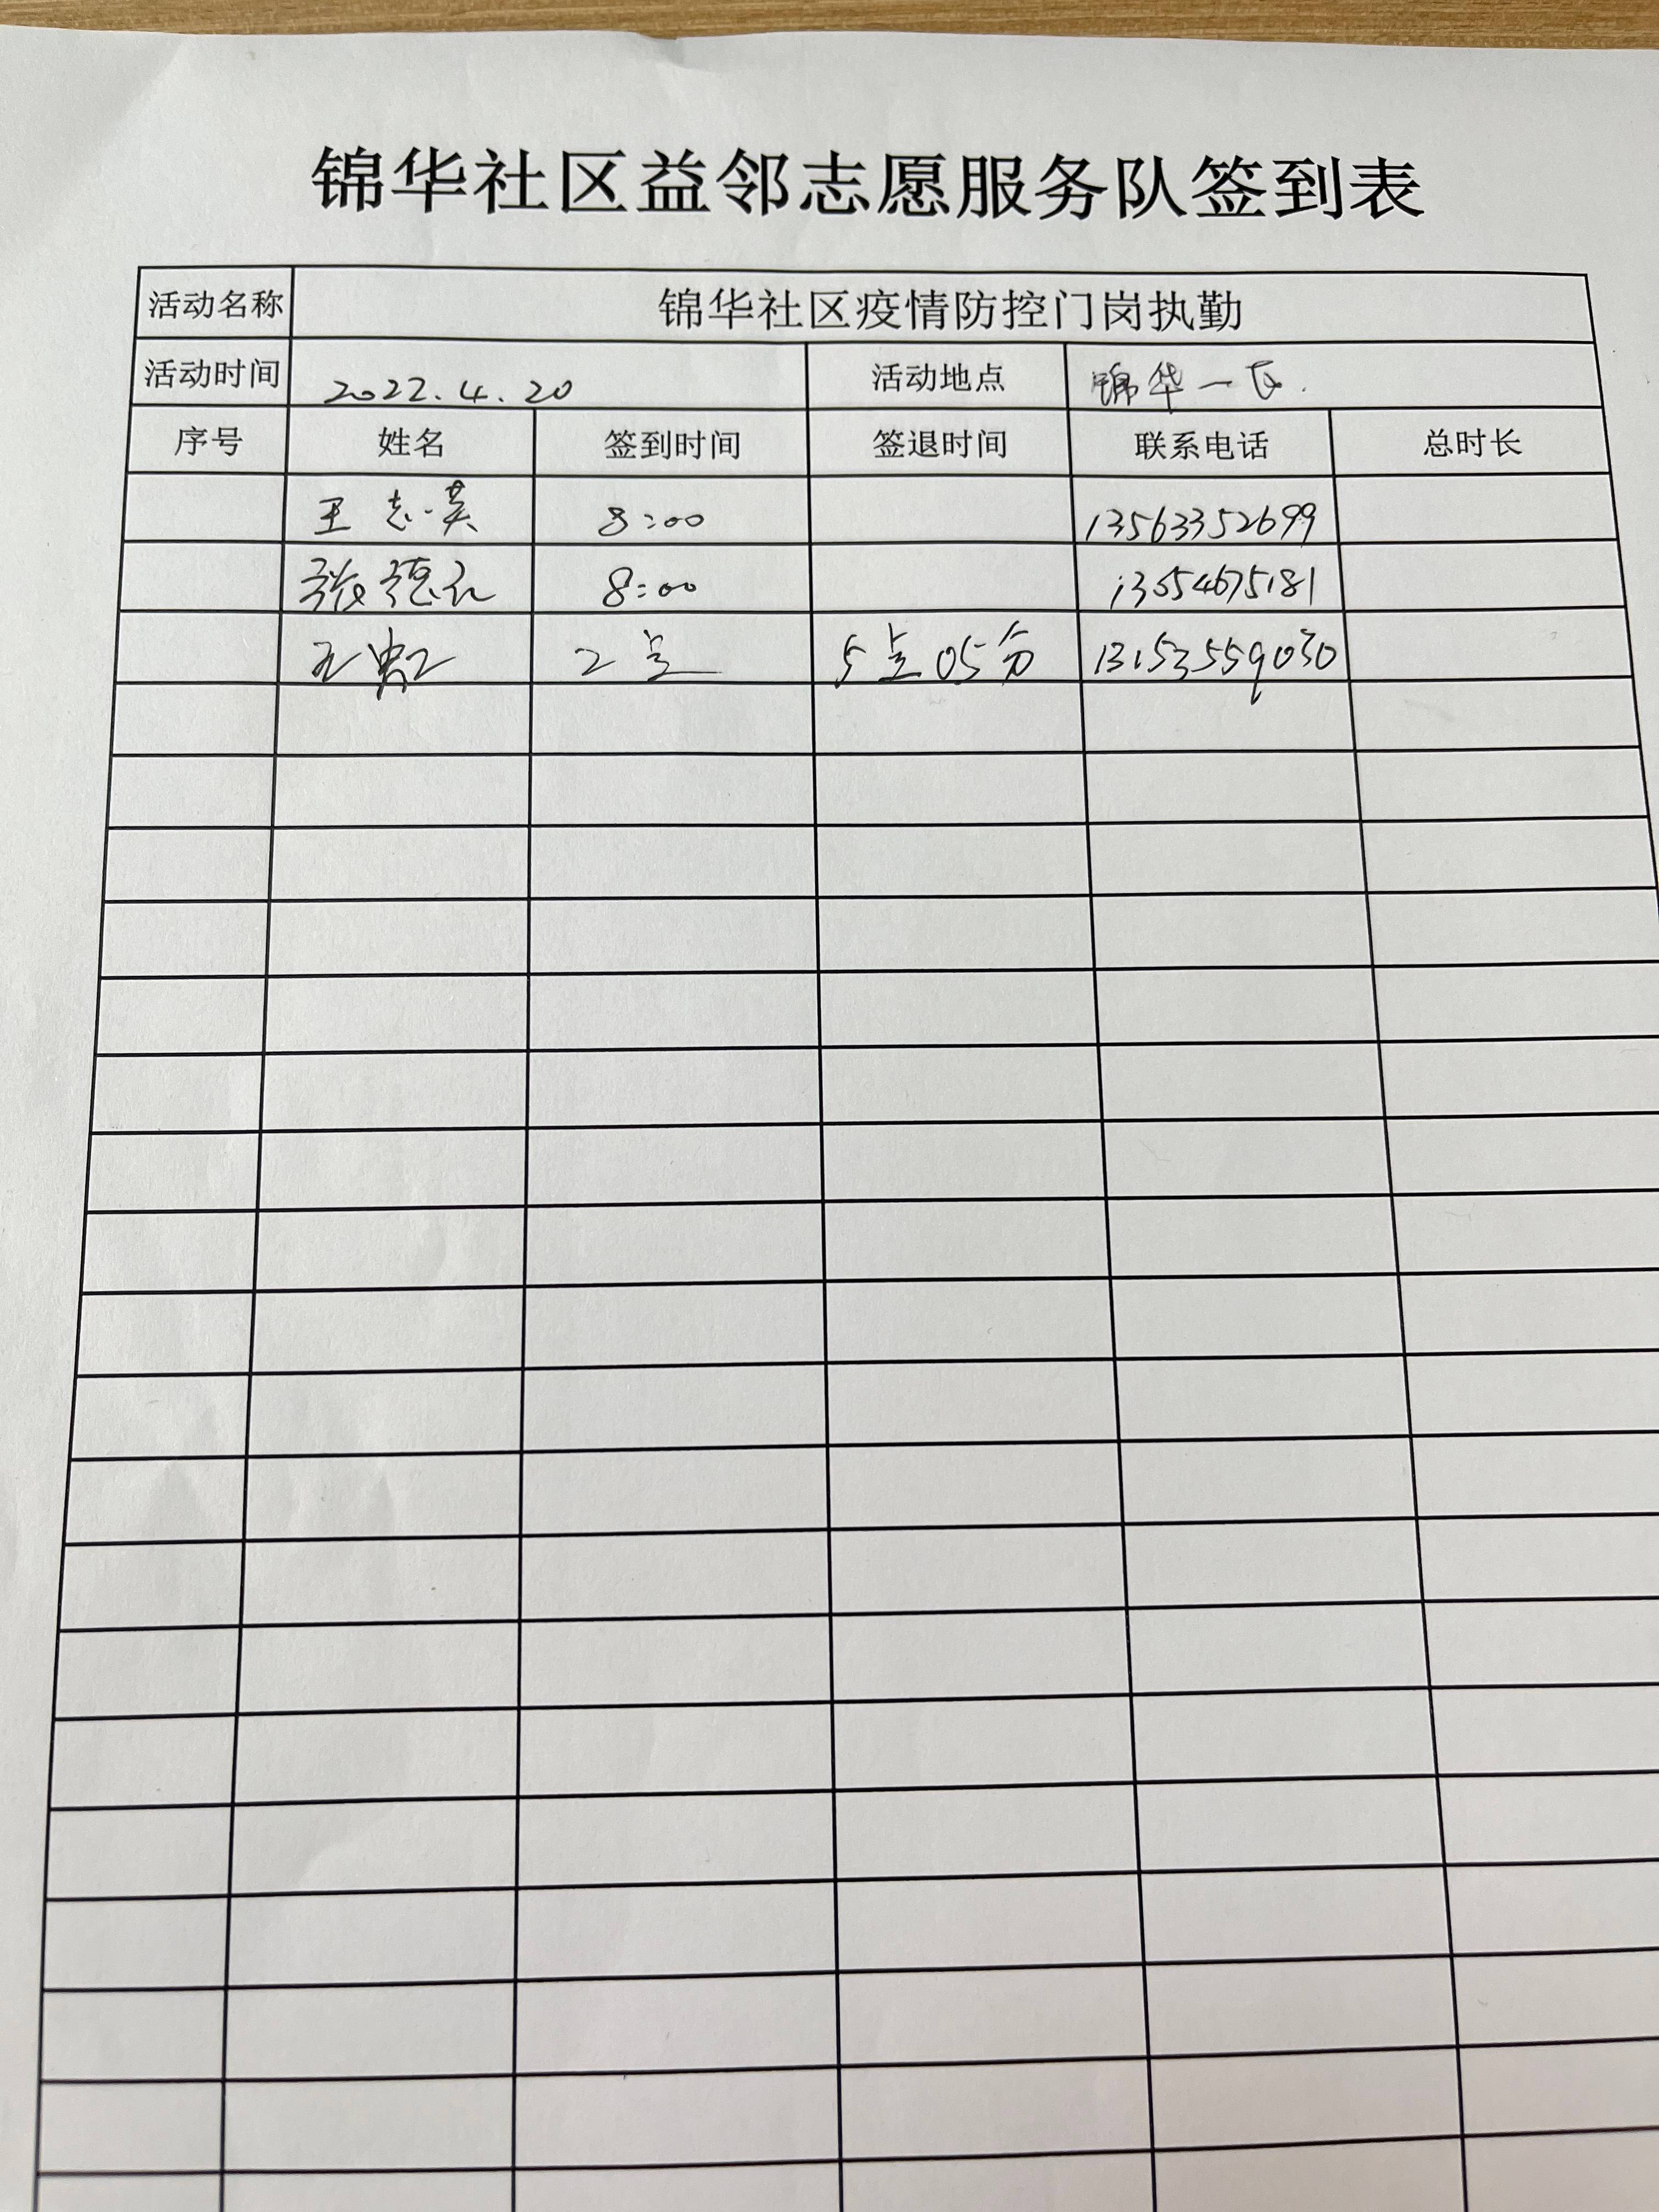 锦华社区益邻志愿服务队签到表
活动名称 锦华社区疫情防控门岗执勤
活动时间 2022.4.20 活动地点 锦华一区.
序号 姓名 签到时间 签退时间 联系电话 总时长
王志英 8:00 13563352699
张德 8:00 13554675181
王 2点 5点05分 13153559030